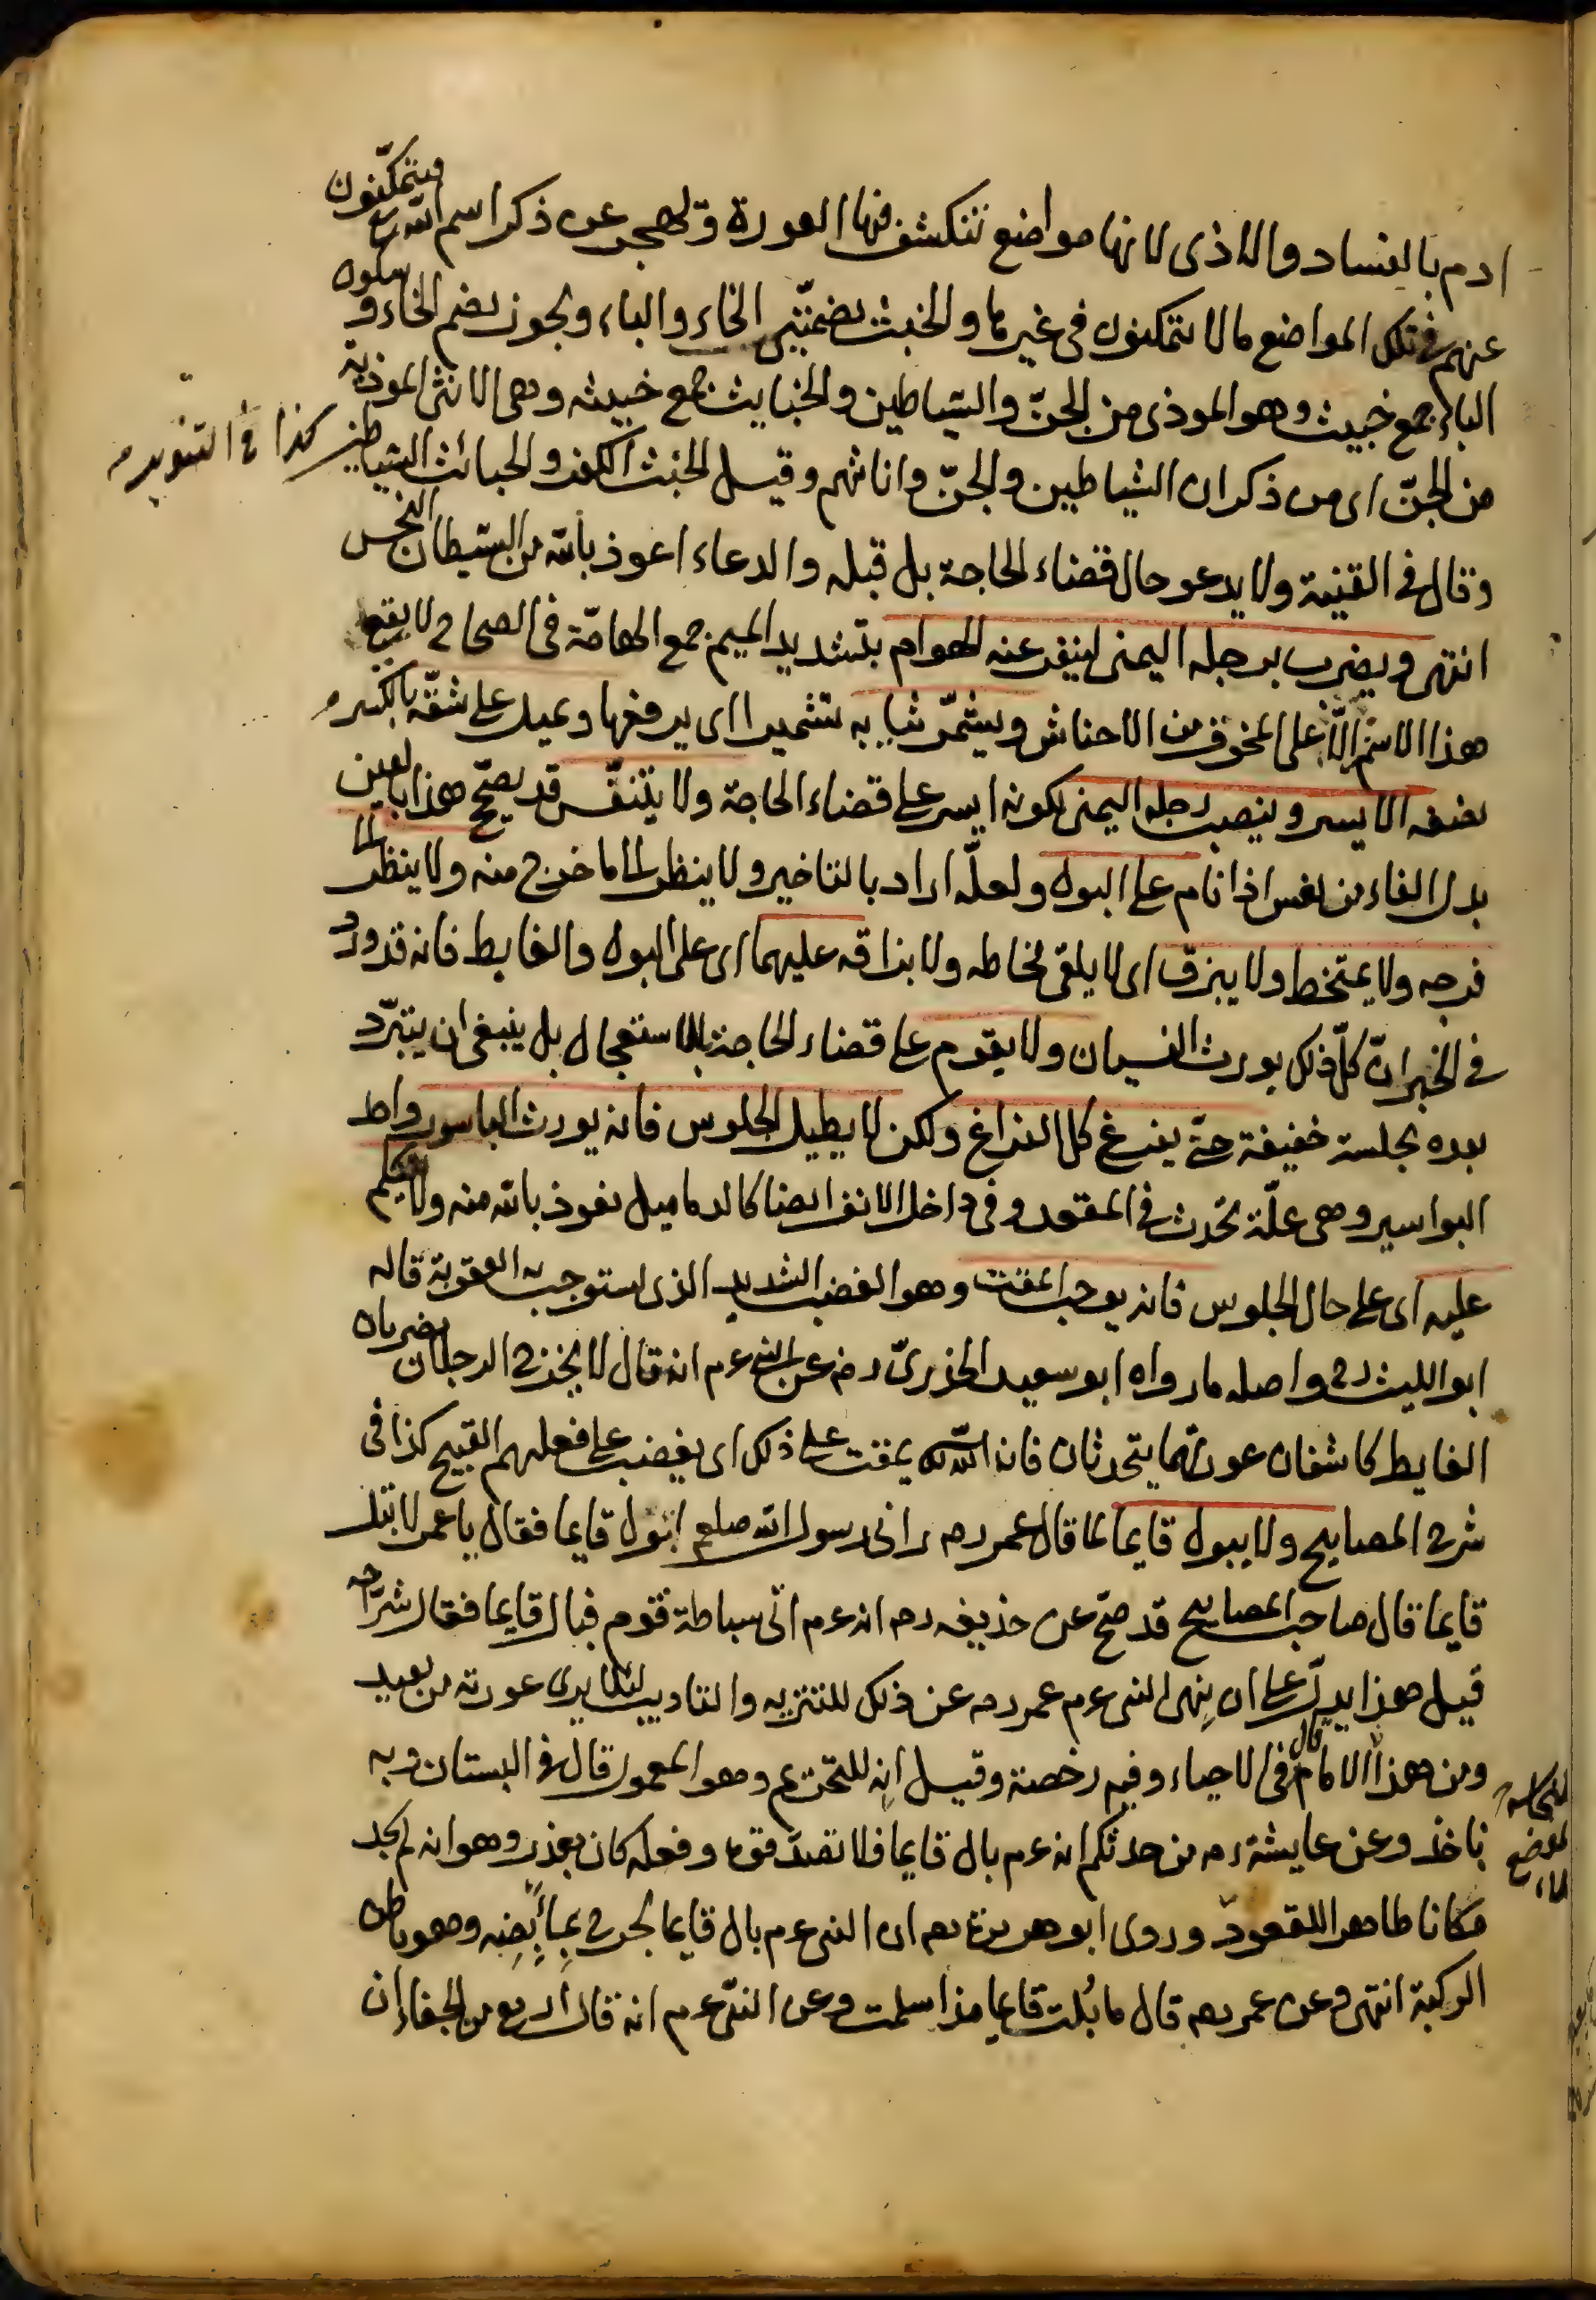 ادم بالفساد والاذى لانها مواضع تنكشف فيها العورة وتهجر عن ذكر اسم الله تع فيتمكّنون
عنهم فى تلك المواضع ما لا يتمكنون فى غيرها والخبث بضمتين الخاء والباء ويجوز بضم الخاء وسكون
الباء جمع خبيث وهو الموذى من الجنّ والشياطين والخبايث جمع خبيثه وهى الانثى الموذية
من الجنّ اى من ذكران الشياطين والجنّ واناثهم وقيل الخبث الكفر والخبائث الشياطين كذا فى التنوير
وقال فى القنية ولا يدعو حال قضاء الحاجة بل قبله والدعاء اعوذ بالله من الشيطان النجس
انتهى ويضرب برجله اليمنى لينفر عنه الهوام بتشديد الميم جمع الهامّة فى الصحاح لا يقع
هذا الاسم الّا على المخوف من الاحناش ويشمّر ثيابه تشميرا اى يرفعها ويميل على شقّه بالكسر
نصفه الايسر وينصب رجله اليمنى لكونه ايسر على قضاء الحاجة ولا يتنفّس قد يصحّح هذا بالعين
بدل الفاء من نعس اذا نام على البول ولعلّه اراد بالتاخير ولا ينظر الى ما خرج منه ولا ينظر الى
فرجه ولا يمتخط ولا يبزق اى لا يلقى مخاطه ولا بزاقه عليهما اى على البول والغايط فانه قد ورد
فى الخبر ان كلّ ذلك يورث النسيان ولا يقوم على قضاء الحاجة بالاستعجال بل ينبغى ان يتبرّد
بعده بجلسة خفيفة حتّى يفرغ كل الفراغ ولكن لا يطيل الجلوس فانه يورث الباسور واحد
البواسير وهى علّة تحدث فى المقعد وفى داخل الانف ايضا كالدماميل نعوذ بالله منه ولا يتكلم
عليه اى على حال الجلوس فانه يوجب المقت وهو الغضب الشديد الذى يستوجب به العقوبة قاله
ابو الليث رح واصله ما رواه ابو سعيد الخدرىّ رض عن النبى عم انه قال لا يخرج الرجلان يضربان
الغايط كاشفان عورتهما يتحدثان فان الله يمقت على ذلك اى يغضب على فعلهم القبيح كذا فى
شرح المصابيح ولا يبول قايما لما قال عمر رض رانى رسول الله صلعم ابول قايما فقال يا عمر لا تبل
قايما قال صاحب المصابيح قد صحّ عن حذيفه رض انه عم اتى سباطة قوم فبال قايما فقال شرّاحه
قيل هذا يدلّ على ان نهى النبى عم عمر رض عن ذلك للتنزيه والتاديب لئلا يرى عورته من بعيد
ومن هذا قال الامام فى الاحياء وفيه رخصة وقيل انه للتحريم وهو المعمول قال فى البستان وبه
ناخذ وعن عايشة رض من حدثكم انه عم بال قايما فلا تصدقوه وفعله كان بعذر وهو انه لم يجد
مكانا طاهرا للقعود وروى ابو هريرة رض ان النبى عم بال قايما لجرح بمأبضه وهو باطن
الركبة انتهى وعن عمر رض قال ما بُلت قايما مذ اسلمت وعن النبىّ عم انه قال اربع من الجفاء ان